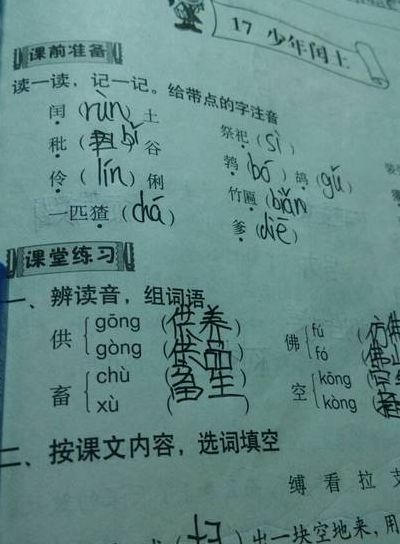 17 少年闰土
课前准备
读一读，记一记。给带点的字注音
闰（rùn）土 祭祀（sì）
秕（bǐ）谷 鹁（bó）鸪（gū）
伶（lín）俐 竹匾（biǎn）
一匹猹（chá） 爹（diē）
课堂练习
一、辨读音，组词语
供 gōng（供养） 佛 fú（仿佛
gòng（供品） fó（佛山
畜 chù（畜生） 空 kōng
xù（ ） kòng
二、按课文内容，选词填空
缚 看 拉 支
（扫）出一块空地来，用